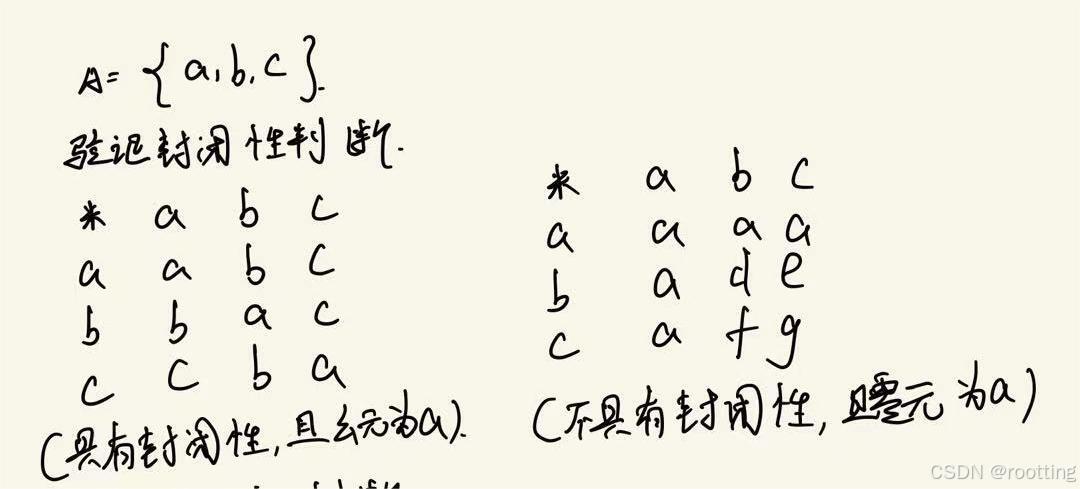 A={a,b,c}.
验证封闭性判断.
* a b c
a a b c
b b a c
c c b a
(具有封闭性,且幺元为a).
* a b c
a a a a
b a d e
c a f g
(不具有封闭性,且零元为a)
CSDN @rootting